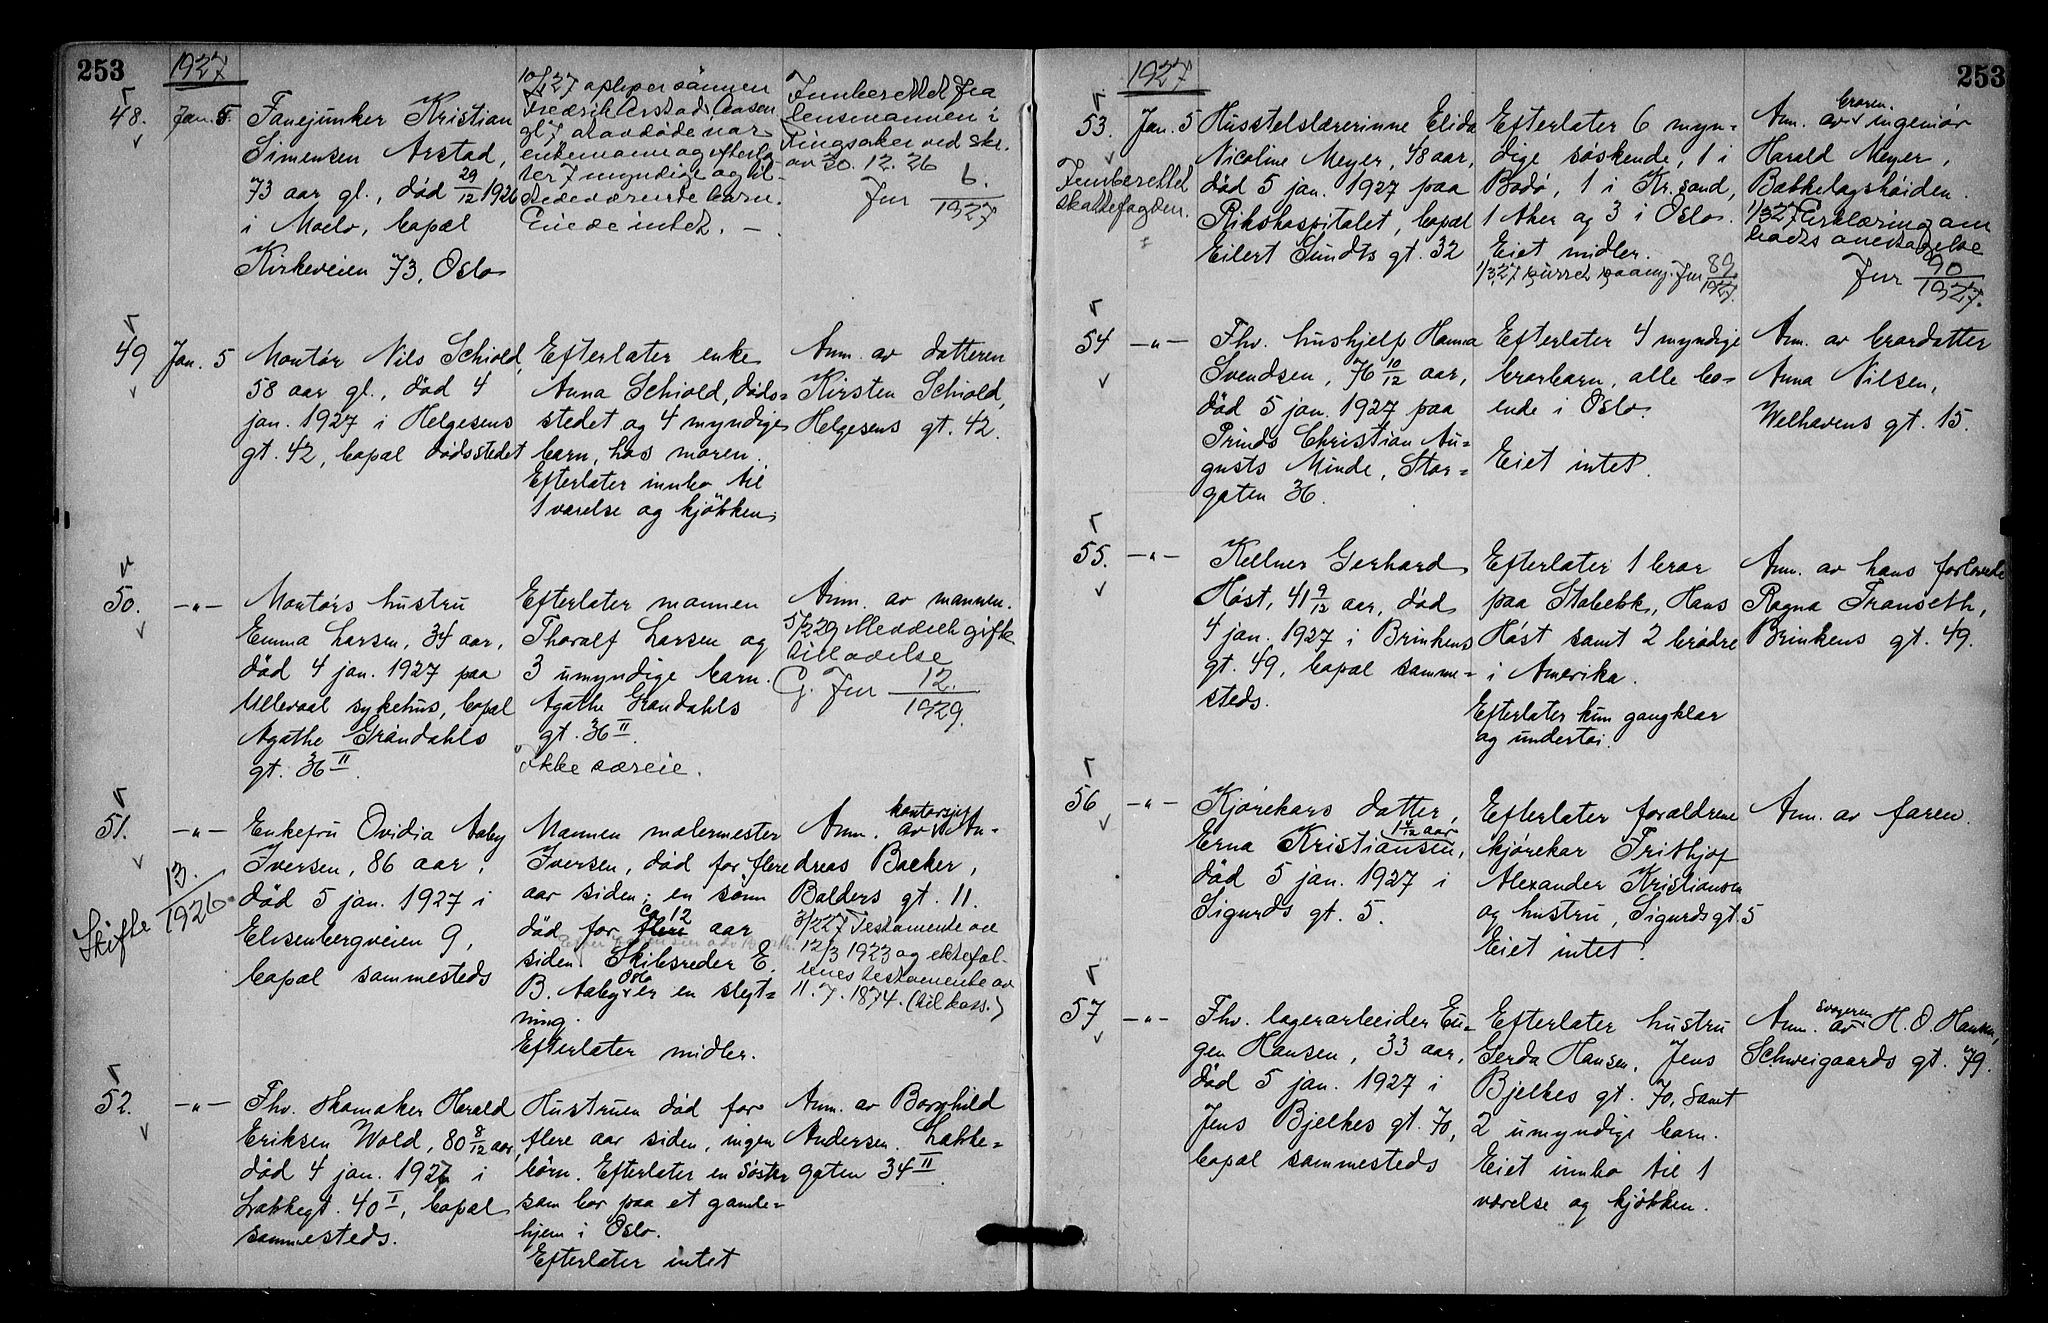 253
1927
48.
Jan. 5.
Fanejunker Kristian
Simensen Arstad,
73 aar gl., död 29/12 1926
i Moelv, bopæl
Kirkeveien 73, Oslo
10/1 27 oplyser sönnen
Fredrik Arstad,
at avdöde var
enkemann og efterla-
ter 7 myndige og til-
stedeværende barn.
Eiede intet. —
Innberettet fra
lensmannen i
Ringsaker ved skr.
av 30. 12. 26
Jnr 6./1927
49
Jan. 5
Montör Nils Schiold,
58 aar gl., död 4
jan. 1927 i Helgesens
gt. 42, bopæl dödsstedet
Efterlater enke
Anna Schiold, döds=
stedet og 4 myndige
barn, hos moren.
Efterlater innbo til
1 værelse og kjökken
Anm. av datteren
Kirsten Schiold,
Helgesens gt. 42.
50.
—"—
Montörs hustru
Emma Larsen, 34 aar,
död 4 jan. 1927 paa
Ullevaal sykehus, bopæl
Agathe Gröndahls
gt. 36 II.
Efterlater mannen
Thoralf Larsen og
3 umyndige barn.
Agathe Gröndahls
gt. 36 II.
ikke særeie.
Anm. av mannen.
5/2 29 Meddelt gifte
tilladelse
G. Jnr 12./1929.
51.
—"—
Skifte 13./1926
Enkefru Ovidia Aaby
Iversen, 86 aar,
död 5 jan. 1927 i
Elisenbergveien 9,
bopæl sammesteds
Mannen malermester
Iversen, död for flere
aar siden; en sönn
död for flere ca 12 aar
siden. Skibsreder E.
B. Aaby Oslo er en slegt=
ning.
Efterlater midler.
Anm. av kontorsjef An=
dreas Backer,
Balders gt. 11.
3/2 27 Testamente av
12/3 1923 og ektefol-
kenes testamente av
11. 7. 1874. (til kass.)
52.
—"—
Fhv. skomaker Herald
Eriksen Wold, 80 8/12 aar,
död 4 jan. 1927 i
Lakkegt. 40 I, bopæl
sammesteds.
Hustruen död for
flere aar siden, ingen
börn. Efterlater en söster
som bor paa et gamle=
hjem i Oslo.
Efterlater intet
Anm. av Borghild
Andersen. Lakke=
gaten 34 II.
253
1927
53.
Jan. 5
Innberettet
skattefogden.
Husstelslærerinne Elida
Nicoline Meyer, 48 aar,
död 5 jan. 1927 paa
Rikshospitalet, bopæl
Eilert Sundts gt. 32
Efterlater 6 myn=
dige söskende, 1 i
Bodö, 1 i Kr.sand,
1 Aker og 3 i Oslo.
Eiet midler.
1/3 27 purret paany. Jnr 89/1927.
Anm. av broren. ingeniör
Harald Meyer,
Bækkelagshöiden.
1/3 27 Erklæring om
boets overtagelse
Jnr 90/1927.
54
—"—
Fhv. hushjelp Hanna
Svendsen, 76 10/12 aar,
död 5 jan. 1927 paa
Prinds Christian Au=
gusts Minde, Stor=
gaten 36.
Efterlater 4 myndige
brorbarn, alle bo=
ende i Oslo.
Eiet intet.
Anm. av brordatter
Anna Nilsen,
Welhavens gt. 15.
55.
—"—
Kellner Gerhard
Höst, 41 9/12 aar, död
4 jan. 1927 i Brinkens
gt. 49, bopæl samme=
steds.
Efterlater 1 bror
paa Stabekk, Hans
Höst samt 2 brödre
i Amerika.
Efterlater kun gangklær
og undertöi.
Anm. av hans forlovede
Ragna Franseth,
Brinkens gt. 49.
56
—"—
Kjörekars datter,
Erna Kristiansen, 1 4/12 aar
död 5 jan. 1927 i
Sigurds gt. 5.
Efterlater forældrene
kjörekar Frithjof
Alexander Kristiansen
og hustru, Sigurds gt. 5
Eiet intet.
Anm. av faren.
57
—"—
Fhv. lagerarbeider Eu=
gen Hansen, 33 aar,
död 5 jan. 1927 i
Jens Bjelkes gt. 70,
bopæl sammesteds
Efterlater hustru
Gerda Hansen, Jens
Bjelkes gt. 70, samt
2 umyndige barn.
Eiet innbo til 1
værelse og kjökken.
Anm. av svogeren H. O. Hansen,
Schweigaards gt. 79.